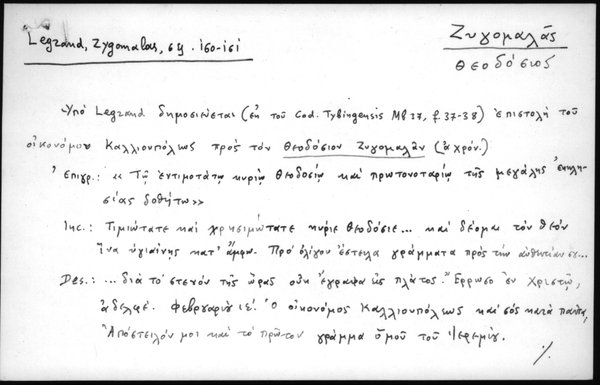 Legrand, Zygomalas, σελ. 160-161
Ζυγομαλᾶς
Θεοδόσιος
Ὑπό Legrand δημοσιεύεται (ἐκ τοῦ Cod. Tybingensis Mb 37, f. 37-38) ἐπιστολή τοῦ
οἰκονόμου Καλλιουπόλεως πρὸς τὸν Θεοδόσιον Ζυγομαλᾶν (ἀχρόν.)
Ἐπιγρ.: «Τῷ ἐντιμοτάτῳ κυρίῳ Θεοδοσίῳ καὶ πρωτονοταρίῳ τῆς μεγάλης ἐκκλη-
σίας δοθήτω»
Inc.: Τιμιώτατε καὶ χρησιμώτατε κύριε Θεοδόσιε... καὶ δέομαι τὸν θεὸν
ἵνα ὑγιαίνῃς κατ' ἄμφω. Πρὸ ὀλίγου ἔστειλα γράμματα πρὸς τὴν αὐθεντίαν σου...
Des.: ...διὰ τὸ στενὸν τῆς ὥρας οὐκ ἔγραψα εἰς πλάτος. Ἔρρωσο ἐν Χριστῷ,
ἀδελφέ. Φεβρουαρίῳ ιε΄. Ὁ οἰκονόμος Καλλιουπόλεως καὶ σὸς κατὰ πάντα,
Ἀπόστειλόν μοι καὶ τὸ πρῶτον γράμμα ὁμοῦ τοῦ Ἱερεμίου.
./.